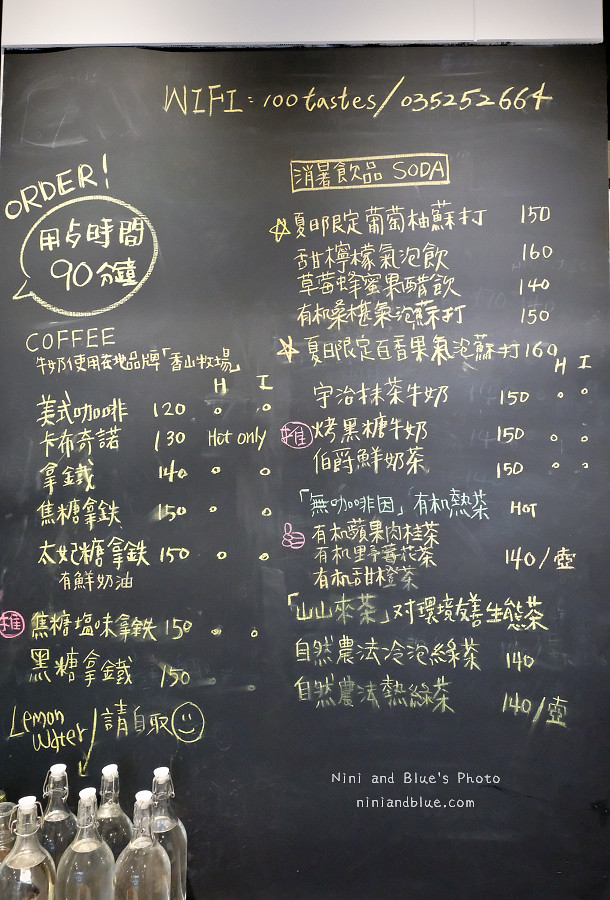 WIFI: 100tastes/035252664
ORDER!
用点時間
90分鐘
COFFEE
牛奶使用在地品牌「香山牧場」
H I
美式咖啡 120
卡布奇諾 130 Hot only
拿鐵 140
焦糖拿鉄 150
太妃糖拿鉄 150
有鮮奶油
推 焦糖塩味拿鉄 150
黑糖拿鐵 150
Lemon Water/請自取
消暑飲品 SODA
夏日限定葡萄柚蘇打 150
甜檸檬氣泡飲 160
草莓蜂蜜果醋飲 140
有机桑椹氣泡蘇打 150
夏日限定百香果氣泡蘇打 160
H I
宇治抹茶牛奶 150
推 烤黑糖牛奶 150
伯爵鮮奶茶 150
「無咖啡因」有机熱茶 HOT
有机蘋果肉桂茶
有机野莓花茶 140/壺
有机甜橙茶
「山山來茶」对環境友善生態茶
自然農法冷泡綠茶 140
自然農法熱綠茶 140/壺
Nini and Blue's Photo
niniandblue.com